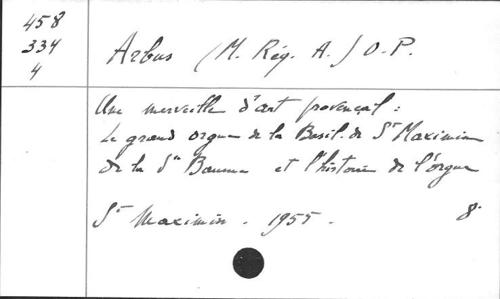 458
334
4
Arbus (M. Rég. A.) O.P.
Une merveille d'art provençal :
Le grand orgue de la Basil. de St Maximin
de la Ste Baume et l'histoire de l'orgue
St Maximin. 1955. 8°